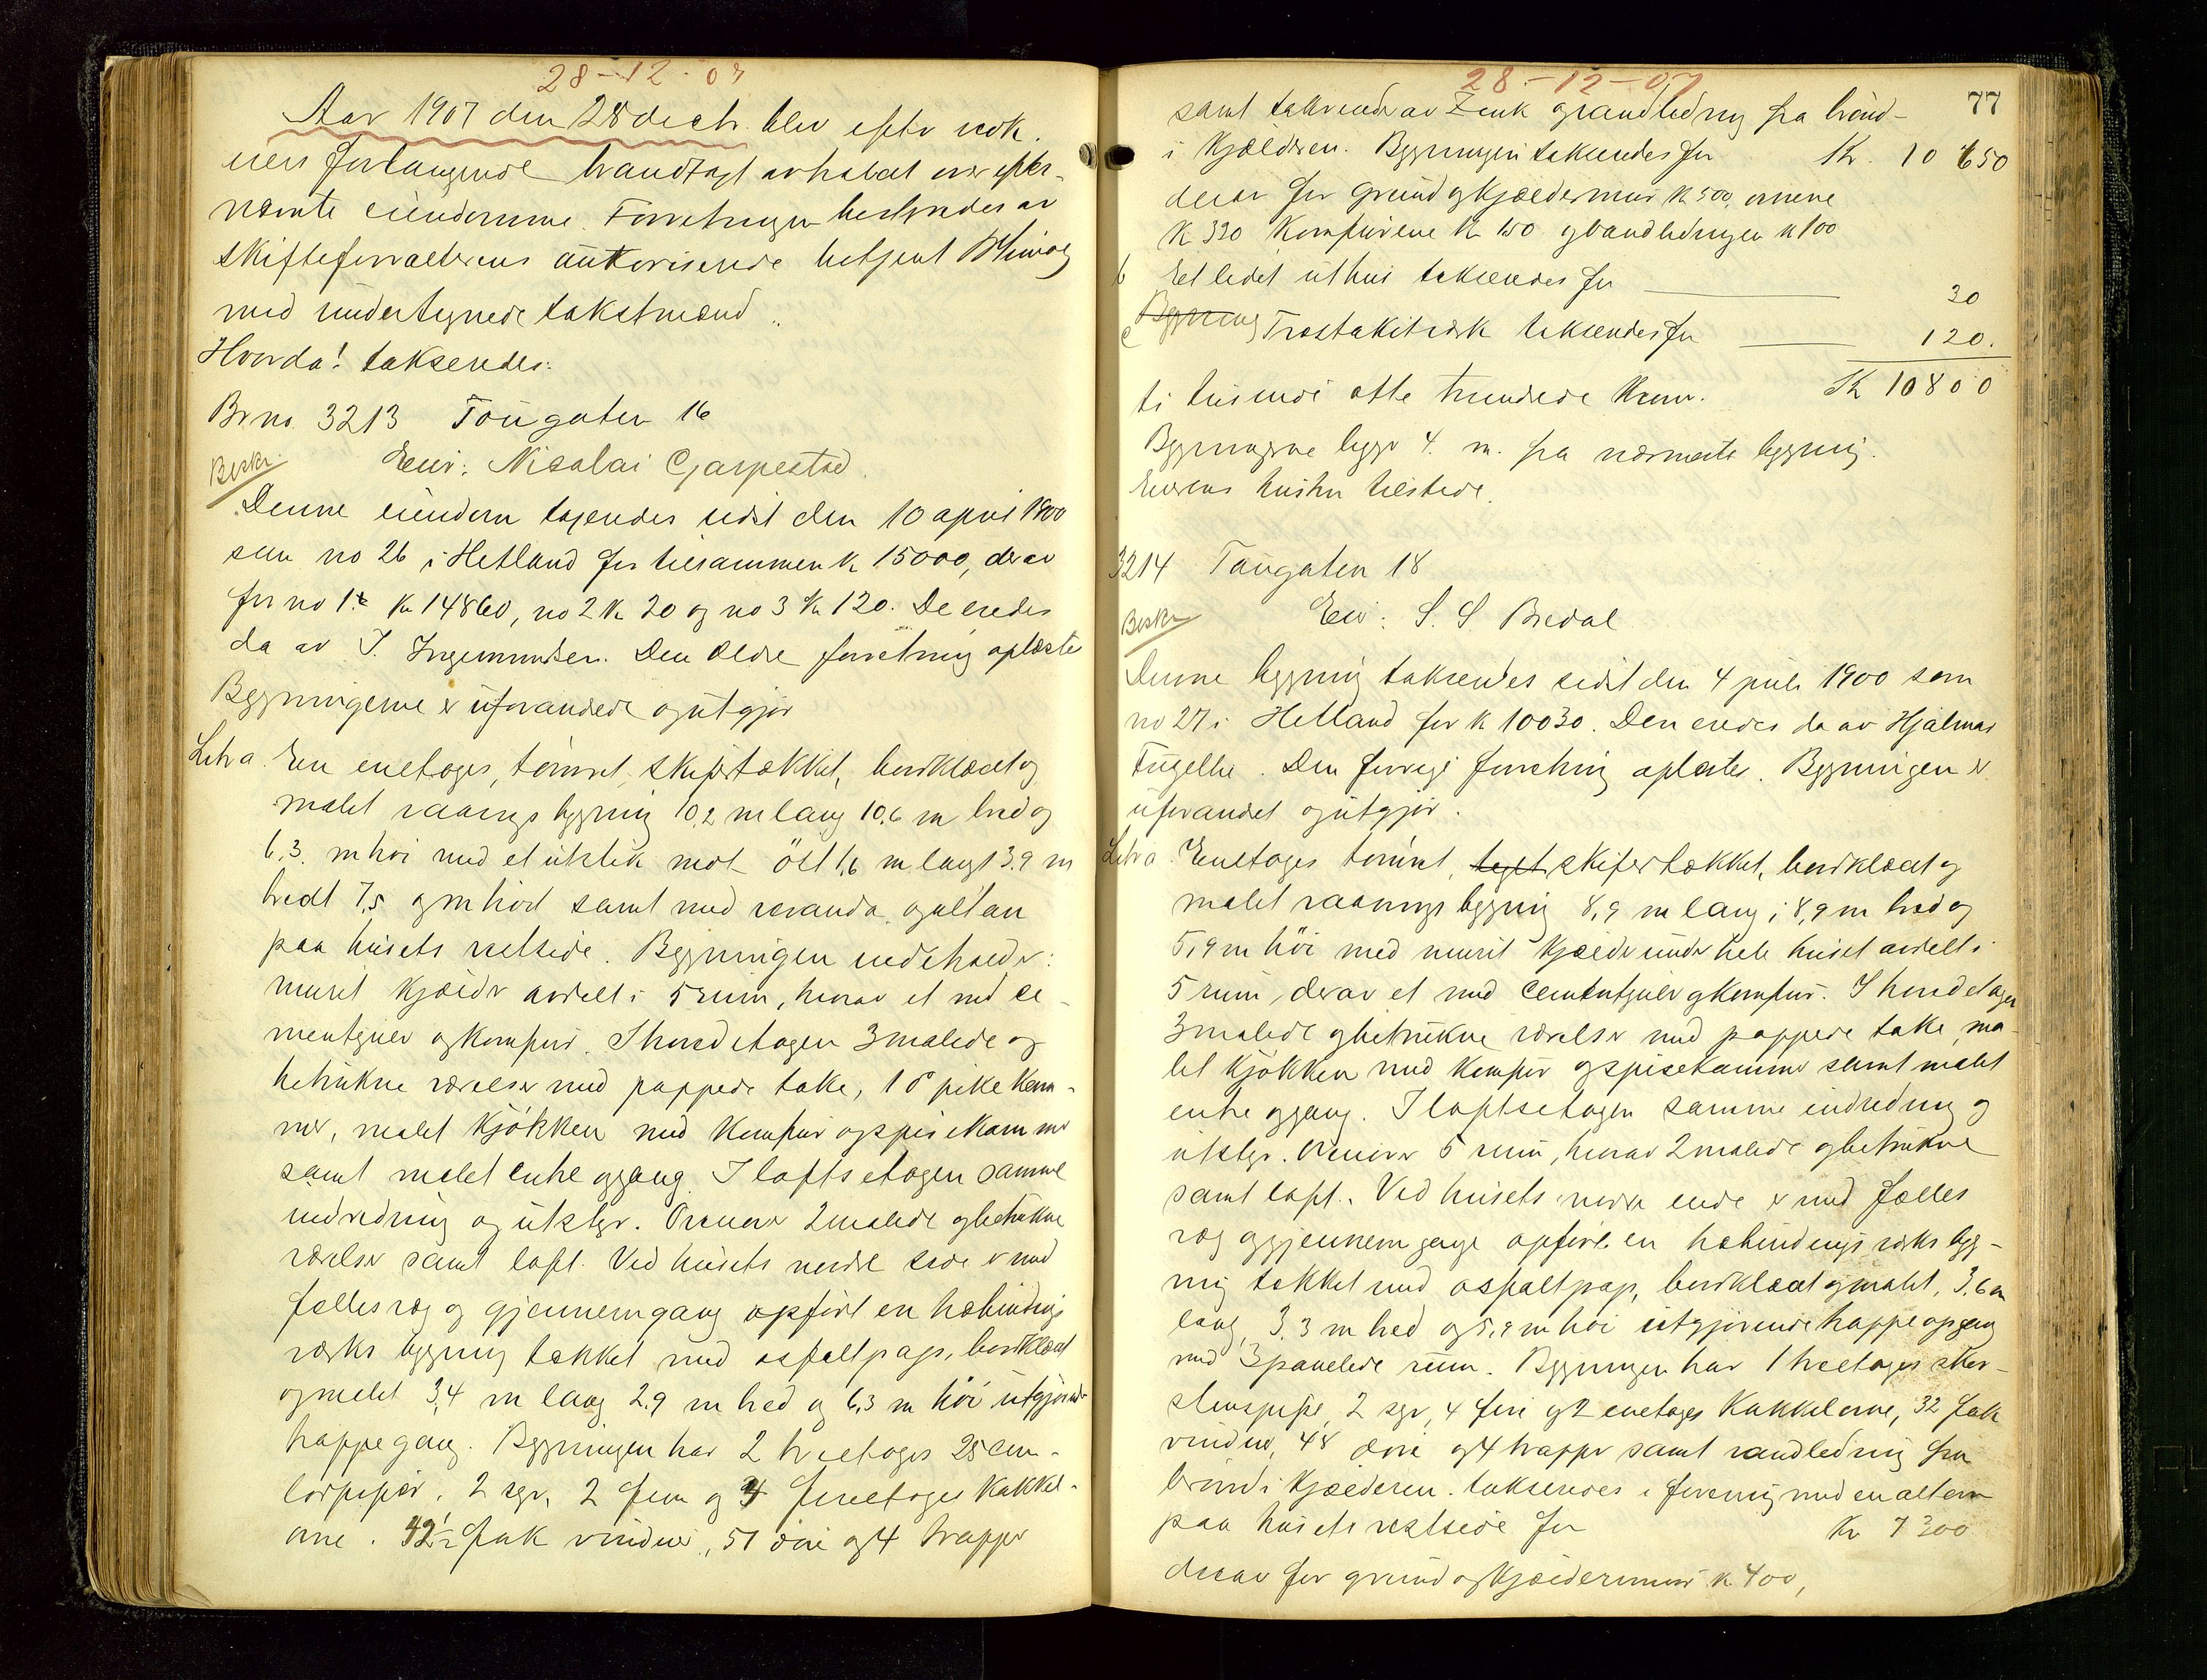 28-12-07
Aar 1907 den 28 decbr. blev efter vedk.
eiers forlangende brandtaxt avholdt over efter-
nævnte eiendomme. Forretningen bestyredes av
skifteforvalterens autoriserede betjent
med undertegnede takstmænd.
Hvorda! takseredes:
Br no. 3213 Tougaten 16
Beskr. Eier: Nicolai Gjarpestad.
Denne eiendom taxeredes sidst den 10 april 1900
som no 26 i Hetland for tilsammen kr 15000, derav
for no 1. kr 14860, no 2 kr 20 og no 3 kr 120. De eiedes
da av I. Ingemundsen. Den ældre forretning oplæstes
Bygningerne er uforandrede og utgjør
Litr a. En enetages, tømret, skifertækket, bordklædt og
malet vaanings bygning 10,2 m lang 10,6 m bred og
6,3 m høi med et utstik mot öst 1,6 m langt 3,9 m
bredt 7,5 og m høit samt med veranda og altan
paa husets vestside. Bygningen indeholder:
muret kjælder avdelt i 5 rum, hvorav et med ce-
mentgulv og komfur. I hovedetagen 3 malede og
betrukne værelser med pappede take, 1 do pikekam-
mer, malet kjøkken med komfur og spisekammer
samt malet entre og gang. I loftsetagen samme
indredning og utstyr. Ovenover 2 malede og betrukne
værelser samt loft. Ved husets nordre side er med
fælles væg og gjennemgang opført en halvbindings
verks bygning tækket med asfaltpap, bordklædt
og malet 3,4 m lang 2,9 m bred og 6,3 m høi utgjørende
trappegang. Bygningen har 2 treetages 25 cm.
lørpiper, 2 sgr, 2 fem og 4 fireetages kakkel-
ovne. 42½ fak vinduer, 51 døre og 4 trapper
28-12-07
77
samt takrender av Zink og vandledning fra brønd
i kjælderen. Bygningen takseredes for Kr. 10 650
derav for grund og kjældermur kr 500, ovnene
kr 320 komfurene kr 150 og vandledningen kr 100
b Et ledet uthus takseredes for 30
c Bygning Træstakitværk takseredes for 120.
ti tusende otte hundrede kroner. Kr 10800
Bygningerne ligger 4. m. fra nærmeste bygning.
Eierens hustru tilstede.
3214 Tougaten 18
Beskr Eier: S. S. Bredal
Denne bygning takseredes sidst den 4 juli 1900 som
no 27 i Hetland for kr 10030. Den eiedes da av Hjalmar
Fugellie. Den forrige forretning oplæstes. Bygningen er
uforandret og utgjør.
Litr a. Enetages tømret, teglt skifertækket, bordklædt og
malet vaanings bygning 8,9 m lang, 8,9 m bred og
5,9 m höi med muret kjælder under hele huset avdelt i
5 rum, derav et med cementgulv og komfur. I hovedetagen
3 malede og betrukne værelser med pappede take, ma-
let kjökken med komfur og spisekammer samt malet
entre og gang. I loftsetagen samme indredning og
utstyr. Ovenover 5 rum, hvorav 2 malede og betrukne
samt loft. Ved husets nordre ende er med fælles
væg og gjennemgang opført en halvbindings verks byg-
ning tækket med asfaltpap, bordklædt og malet, 3,6 m
lang, 3,3 m bred og 5,9 m høi utgjørende trappeopgang
med 3 panelede rum. Bygningen har 1 treetages skor-
stenspipe, 2 sgr, 4 fire og 2 enetages kakkelovne, 32 fak
vinduer, 48 døre og 4 trapper samt vandledning fra
brønd i kjælderen. takseredes i forening med en altan
paa husets vestside for Kr 7300
derav for grund og kjældermur kr 400,